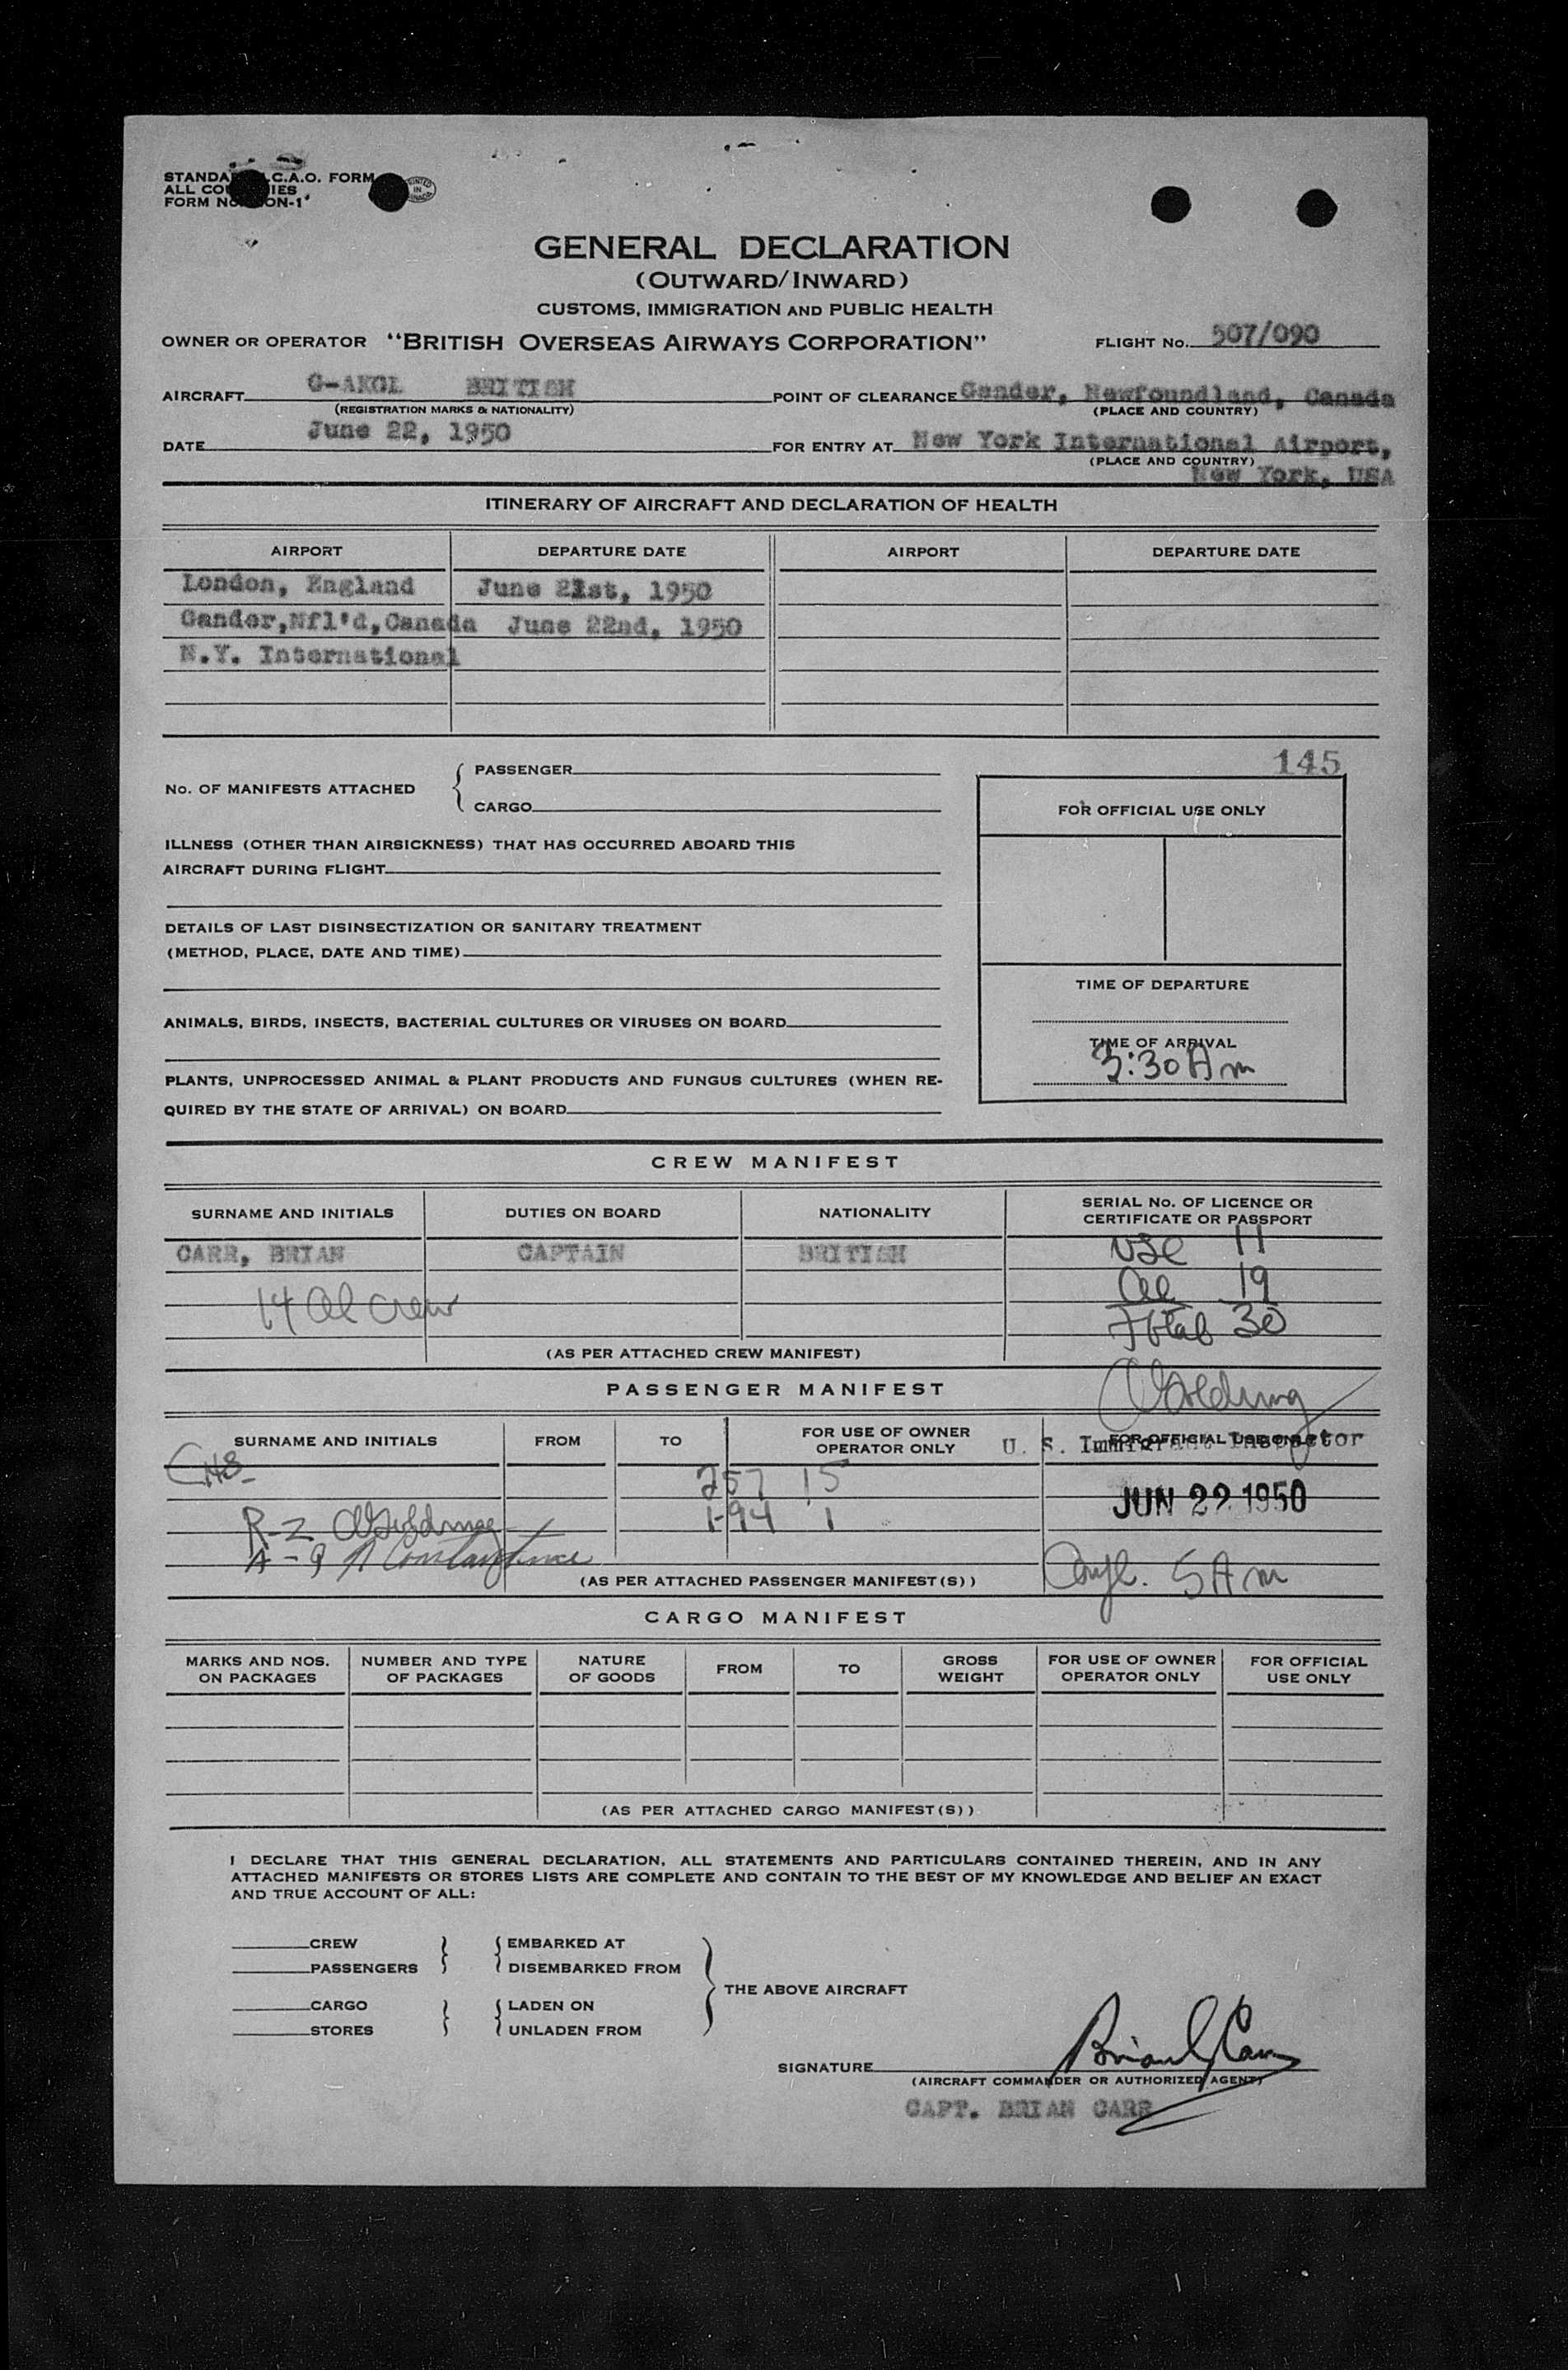 STANDA C.A.O. FORM
ALL CO IES
FORM NO ON-1
PRINTED IN CANADA
GENERAL DECLARATION
(OUTWARD/INWARD)
CUSTOMS, IMMIGRATION AND PUBLIC HEALTH
OWNER OR OPERATOR "BRITISH OVERSEAS AIRWAYS CORPORATION" FLIGHT No. 507/090
AIRCRAFT G-AKGL BRITISH POINT OF CLEARANCE Gander, Newfoundland, Canada
(REGISTRATION MARKS & NATIONALITY) (PLACE AND COUNTRY)
DATE June 22, 1950 FOR ENTRY AT New York International Airport,
(PLACE AND COUNTRY)
New York, USA
ITINERARY OF AIRCRAFT AND DECLARATION OF HEALTH
AIRPORT DEPARTURE DATE AIRPORT DEPARTURE DATE
London, England June 21st, 1950
Gander,Nfl'd,Canada June 22nd, 1950
N.Y. International
145
No. OF MANIFESTS ATTACHED { PASSENGER
CARGO
FOR OFFICIAL USE ONLY
ILLNESS (OTHER THAN AIRSICKNESS) THAT HAS OCCURRED ABOARD THIS
AIRCRAFT DURING FLIGHT
DETAILS OF LAST DISINSECTIZATION OR SANITARY TREATMENT
(METHOD, PLACE, DATE AND TIME)
TIME OF DEPARTURE
ANIMALS, BIRDS, INSECTS, BACTERIAL CULTURES OR VIRUSES ON BOARD
TIME OF ARRIVAL
3:30 Am
PLANTS, UNPROCESSED ANIMAL & PLANT PRODUCTS AND FUNGUS CULTURES (WHEN RE-
QUIRED BY THE STATE OF ARRIVAL) ON BOARD
CREW MANIFEST
SURNAME AND INITIALS DUTIES ON BOARD NATIONALITY SERIAL No. OF LICENCE OR
CERTIFICATE OR PASSPORT
CARR, BRIAN CAPTAIN BRITISH 11
14 al crew 19
Total 30
(AS PER ATTACHED CREW MANIFEST)
PASSENGER MANIFEST
Golding
SURNAME AND INITIALS FROM TO FOR USE OF OWNER
OPERATOR ONLY FOR OFFICIAL USE ONLY
U. S. Immigrant Inspector
257 15
JUN 22 1950
R-Z Golding I-94 1
A-Q A Constantine
(AS PER ATTACHED PASSENGER MANIFEST(S))
5 Am
CARGO MANIFEST
MARKS AND NOS.
ON PACKAGES NUMBER AND TYPE
OF PACKAGES NATURE
OF GOODS FROM TO GROSS
WEIGHT FOR USE OF OWNER
OPERATOR ONLY FOR OFFICIAL
USE ONLY
(AS PER ATTACHED CARGO MANIFEST(S))
I DECLARE THAT THIS GENERAL DECLARATION, ALL STATEMENTS AND PARTICULARS CONTAINED THEREIN, AND IN ANY
ATTACHED MANIFESTS OR STORES LISTS ARE COMPLETE AND CONTAIN TO THE BEST OF MY KNOWLEDGE AND BELIEF AN EXACT
AND TRUE ACCOUNT OF ALL:
CREW EMBARKED AT
PASSENGERS DISEMBARKED FROM
THE ABOVE AIRCRAFT
CARGO LADEN ON
STORES UNLADEN FROM
SIGNATURE Brian Carr
(AIRCRAFT COMMANDER OR AUTHORIZED AGENT)
CAPT. BRIAN CARR